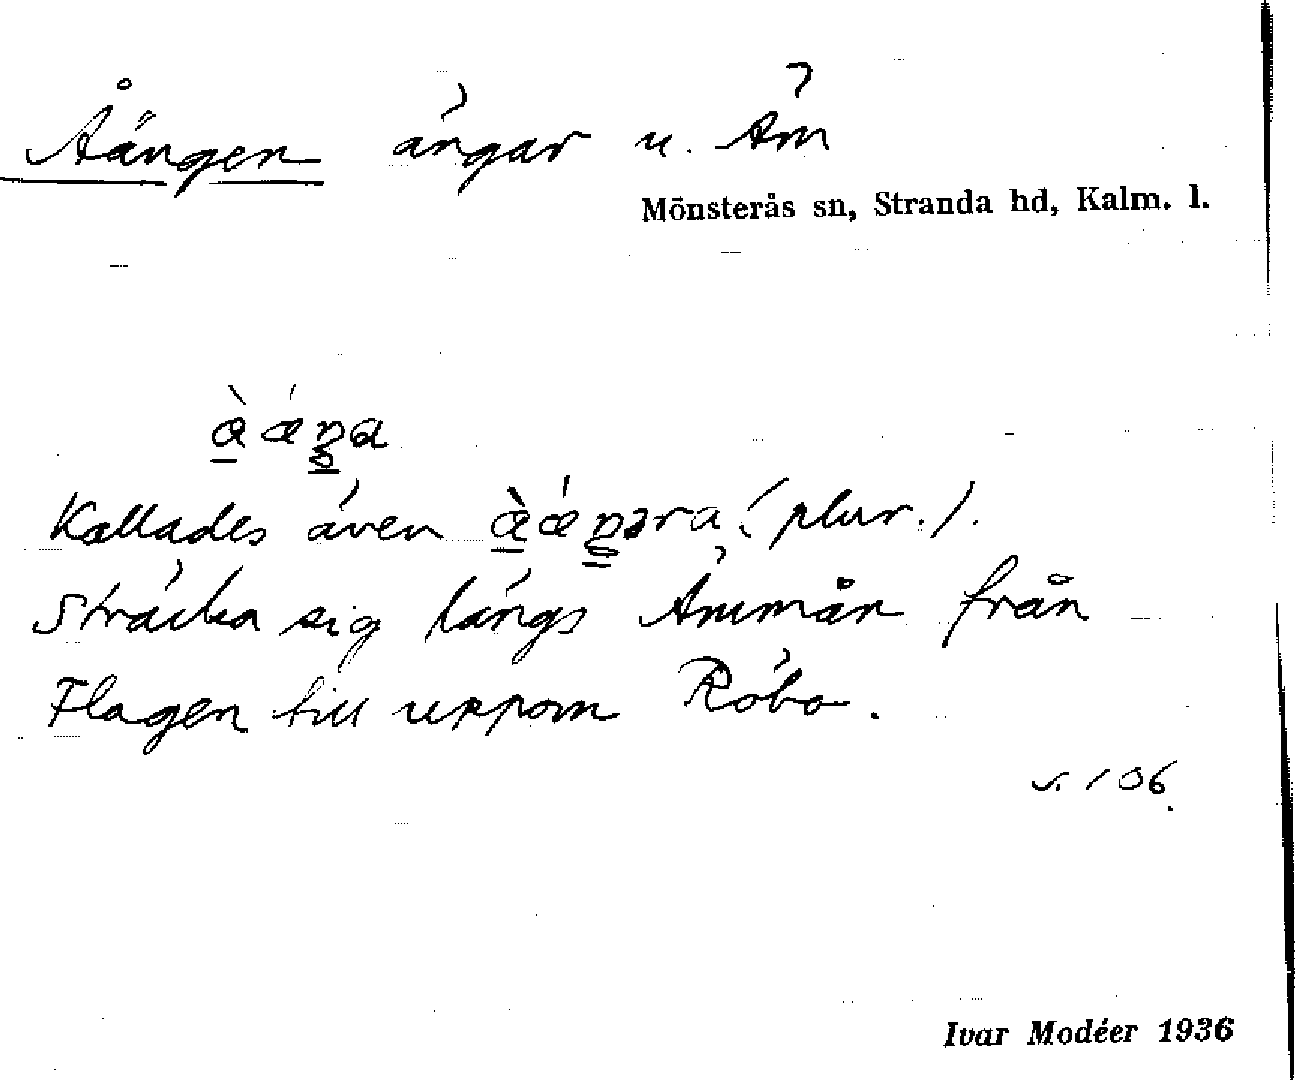 Åängen ängar u. Äm
Mönsterås sn, Stranda hd, Kalm. l.
Kallades även (plur.).
Sträcka sig längs Ämmån från
Flagen till uppom Röbo.
s. 106
Ivar Modéer 1936